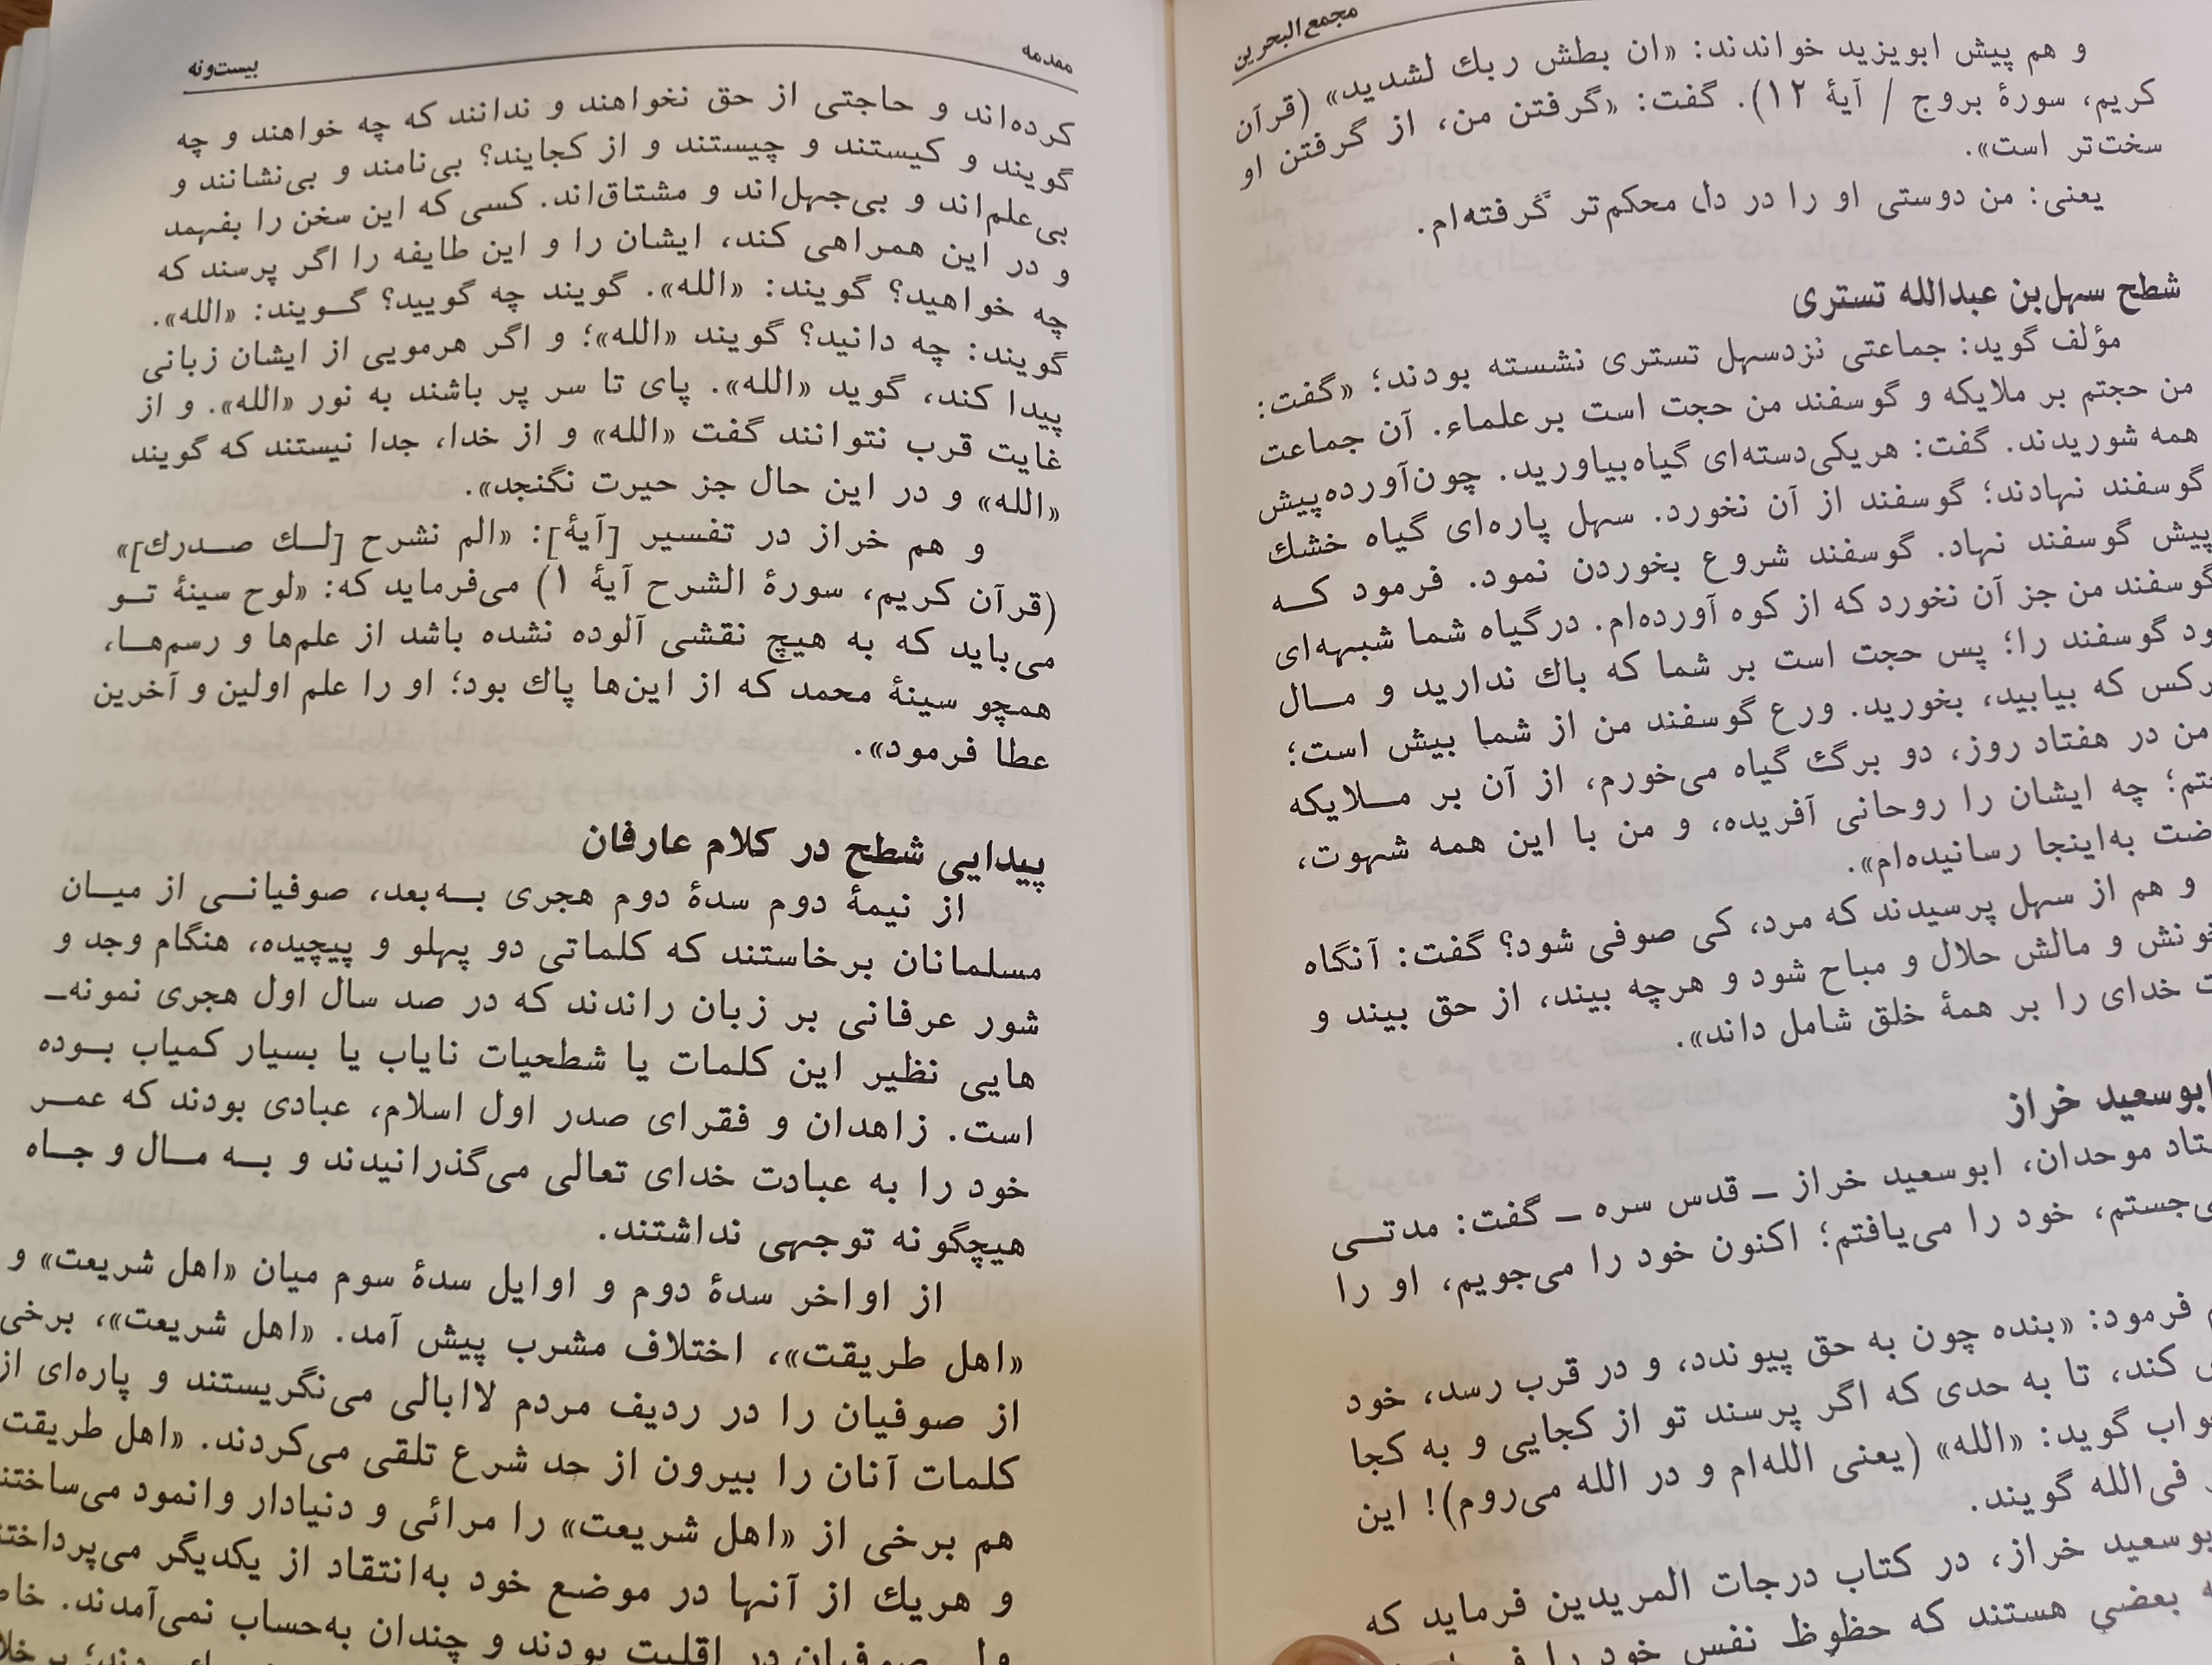 مجمع‌البحرین
و هم پیش ابویزید خواندند: «ان بطش ربك لشدید» (قرآن
کریم، سورهٔ بروج / آیهٔ ۱۲). گفت: «گرفتن من، از گرفتن او
سخت‌تر است».
یعنی: من دوستی او را در دل محکم‌تر گرفته‌ام.
شطح سهل‌بن عبدالله تستری
مؤلف گوید: جماعتی نزدسهل تستری نشسته بودند؛ «گفت:
من حجتم بر ملایکه و گوسفند من حجت است بر علماء. آن جماعت
همه شوریدند. گفت: هریکی‌دسته‌ای گیاه‌بیاورید. چون‌آورده‌پیش
گوسفند نهادند؛ گوسفند از آن نخورد. سهل پاره‌ای گیاه خشك
پیش گوسفند نهاد. گوسفند شروع بخوردن نمود. فرمود که
گوسفند من جز آن نخورد که از کوه آورده‌ام. درگیاه شما شبهه‌ای
گوسفند را؛ پس حجت است بر شما که باك ندارید و مال
که بیابید، بخورید. ورع گوسفند من از شما بیش است؛
من در هفتاد روز، دو برگ گیاه می‌خورم، از آن بر ملایکه
چه ایشان را روحانی آفریده، و من با این همه شهوت،
به‌اینجا رسانیده‌ام».
و هم از سهل پرسیدند که مرد، کی صوفی شود؟ گفت: آنگاه
و مالش حلال و مباح شود و هرچه بیند، از حق بیند و
خدای را بر همهٔ خلق شامل داند».
ابوسعید خراز
موحدان، ابوسعید خراز ـ قدس سره ـ گفت: مدتی
خود را می‌یافتم؛ اکنون خود را می‌جویم، او را
فرمود: «بنده چون به حق پیوندد، و در قرب رسد، خود
کند، تا به حدی که اگر پرسند تو از کجایی و به کجا
گوید: «الله» (یعنی الله‌ام و در الله می‌روم)! این
فی‌الله گویند.
خراز، در کتاب درجات المریدین فرماید که
بعضی هستند که حظوظ نفس خود را
مقدمه
بیست‌ونه
کرده‌اند و حاجتی از حق نخواهند و ندانند که چه خواهند و چه
گویند و کیستند و چیستند و از کجایند؟ بی‌نامند و بی‌نشانند و
بی‌علم‌اند و بی‌جهل‌اند و مشتاق‌اند. کسی که این سخن را بفهمد
و در این همراهی کند، ایشان را و این طایفه را اگر پرسند که
چه خواهید؟ گویند: «الله». گویند چه گویید؟ گویند: «الله».
گویند: چه دانید؟ گویند «الله»؛ و اگر هرمویی از ایشان زبانی
پیدا کند، گوید «الله». پای تا سر پر باشند به نور «الله». و از
غایت قرب نتوانند گفت «الله» و از خدا، جدا نیستند که گویند
«الله» و در این حال جز حیرت نگنجد».
و هم خراز در تفسیر [آیهٔ]: «الم نشرح [لك صدرك]»
(قرآن کریم، سورهٔ الشرح آیهٔ ۱) می‌فرماید که: «لوح سینهٔ تو
می‌باید که به هیچ نقشی آلوده نشده باشد از علم‌ها و رسم‌ها،
همچو سینهٔ محمد که از این‌ها پاك بود؛ او را علم اولین و آخرین
عطا فرمود».
پیدایی شطح در کلام عارفان
از نیمهٔ دوم سدهٔ دوم هجری به‌بعد، صوفیانی از میان
مسلمانان برخاستند که کلماتی دو پهلو و پیچیده، هنگام وجد و
شور عرفانی بر زبان راندند که در صد سال اول هجری نمونه‌ـ
هایی نظیر این کلمات یا شطحیات نایاب یا بسیار کمیاب بوده
است. زاهدان و فقرای صدر اول اسلام، عبادی بودند که عمر
خود را به عبادت خدای تعالی می‌گذرانیدند و به مال و جاه
هیچگونه توجهی نداشتند.
از اواخر سدهٔ دوم و اوایل سدهٔ سوم میان «اهل شریعت» و
«اهل طریقت»، اختلاف مشرب پیش آمد. «اهل شریعت»، برخی
از صوفیان را در ردیف مردم لاابالی می‌نگریستند و پاره‌ای از
کلمات آنان را بیرون از حد شرع تلقی می‌کردند. «اهل طریقت
هم برخی از «اهل شریعت» را مرائی و دنیادار وانمود می‌ساختند
و هریك از آنها در موضع خود به‌انتقاد از یکدیگر می‌پرداختند
صوفیان در اقلیت بودند و چندان به‌حساب نمی‌آمدند.